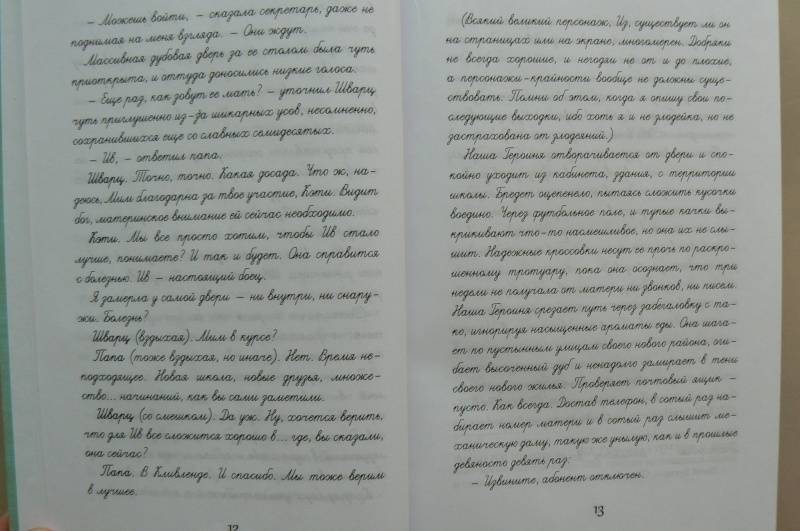 – Можешь войти, – сказала секретарь, даже не
поднимая на меня взгляда. – Они ждут.
Массивная дубовая дверь за ее столом была чуть
приоткрыта, и оттуда доносились низкие голоса.
– Еще раз, как зовут ее мать? – уточнил Шварц
чуть приглушенно из-за шикарных усов, несомненно,
сохранившихся еще со славных семидесятых.
– Ив, – ответил папа.
Шварц. Точно, точно. Какая досада. Что ж, на-
деюсь, Мим благодарна за твое участие, Кэти. Видит
бог, материнское внимание ей сейчас необходимо.
Кэти. Мы все просто хотим, чтобы Ив стало
лучше, понимаете? И так и будет. Она справится
с болезнью. Ив – настоящий боец.
Я замерла у самой двери – ни внутри, ни снару-
жи. Болезнь?
Шварц (вздыхая). Мим в курсе?
Папа (тоже вздыхая, но иначе). Нет. Время не-
подходящее. Новая школа, новые друзья, множе-
ство... начинаний, как вы сами заметили.
Шварц (со смешком). Да уж. Ну, хочется верить,
что для Ив все сложится хорошо в... где, вы сказали,
она сейчас?
Папа. В Кливленде. И спасибо. Мы тоже верим
в лучшее.
12
(Всякий великий персонаж, Из, существует ли он
на страницах или на экране, многомерен. Добряки
не всегда хорошие, и негодяи не от и до плохие,
а персонажи-крайности вообще не должны суще-
ствовать. Помни об этом, когда я опишу свои по-
следующие выходки, ибо хоть я и не злодейка, но не
застрахована от злодеяний.)
Наша Героиня отворачивается от двери и спо-
койно уходит из кабинета, здания, с территории
школы. Бредет оцепенело, пытаясь сложить кусочки
воедино. Через футбольное поле, и тупые качки вы-
крикивают что-то насмешливое, но она их не слы-
шит. Надежные кроссовки несут ее прочь по раскро-
шенному тротуару, пока она осознает, что три
недели не получала от матери ни звонков, ни писем.
Наша Героиня срезает путь через забегаловку с та-
ко, игнорируя насыщенные ароматы еды. Она шага-
ет по пустынным улицам своего нового района, оги-
бает высоченный дуб и ненадолго замирает в тени
своего нового жилья. Проверяет почтовый ящик –
пусто. Как всегда. Достав телефон, в сотый раз на-
бирает номер матери и в сотый раз слышит ме-
ханическую даму, такую же унылую, как и в прошлые
девяносто девять раз:
– Извините, абонент отключен.
13